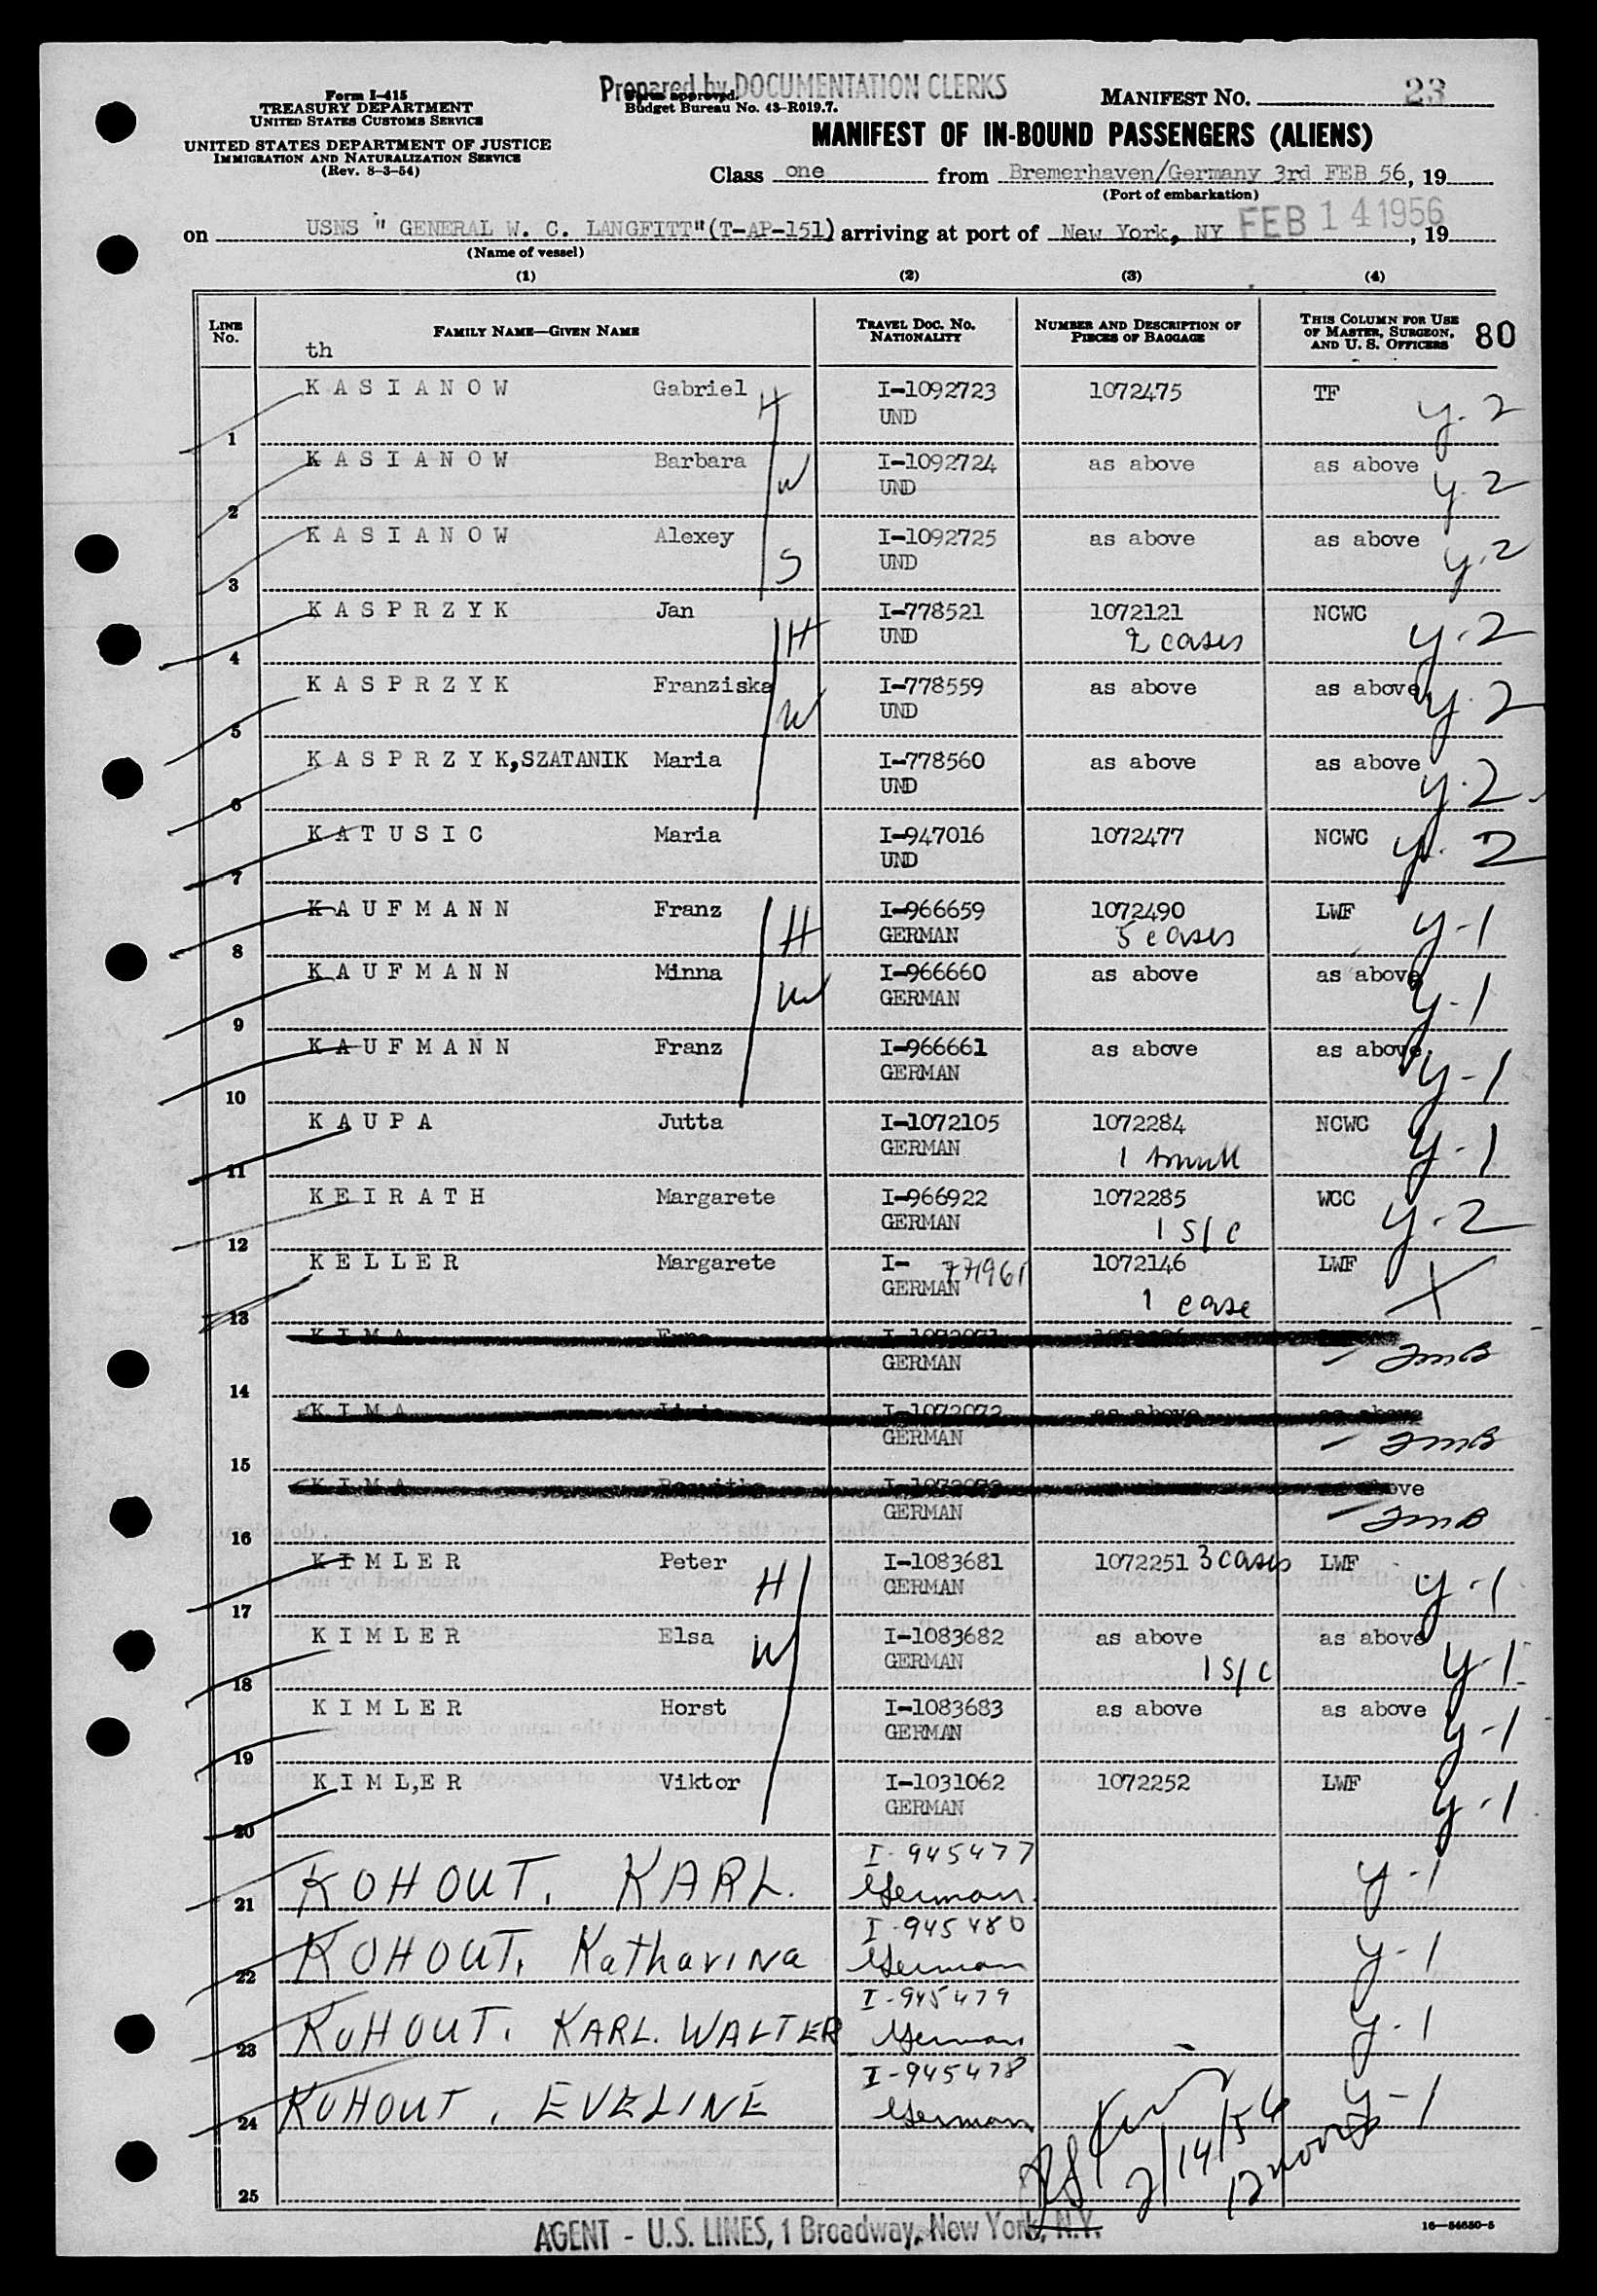 Form I-415
TREASURY DEPARTMENT
UNITED STATES CUSTOMS SERVICE
UNITED STATES DEPARTMENT OF JUSTICE
IMMIGRATION AND NATURALIZATION SERVICE
(Rev. 8-3-54)
Prepared by DOCUMENTATION CLERKS
Form approved.
Budget Bureau No. 43-R019.7.
MANIFEST NO. 23
MANIFEST OF IN-BOUND PASSENGERS (ALIENS)
Class one from Bremerhaven/Germany 3rd FEB 56, 19
(Port of embarkation)
on USNS " GENERAL W. C. LANGFITT"(T-AP-151) arriving at port of New York, NY FEB 14 1956, 19
(Name of vessel)
(1) (2) (3) (4)
LINE No. FAMILY NAME—GIVEN NAME TRAVEL DOC. NO. NATIONALITY NUMBER AND DESCRIPTION OF PIECES OF BAGGAGE THIS COLUMN FOR USE OF MASTER, SURGEON, AND U. S. OFFICERS 80
th
K A S I A N O W Gabriel H I-1092723 1072475 TF y-2
1 UND
K A S I A N O W Barbara W I-1092724 as above as above y.2
2 UND
K A S I A N O W Alexey S I-1092725 as above as above y.2
3 UND
K A S P R Z Y K Jan H I-778521 1072121 NCWC y.2
4 UND 2 cases
K A S P R Z Y K Franziska W I-778559 as above as above y.2
5 UND
K A S P R Z Y K,SZATANIK Maria I-778560 as above as above y.2
6 UND
K A T U S I C Maria I-947016 1072477 NCWC y. 2
7 UND
K A U F M A N N Franz H I-966659 1072490 LWF y-1
8 GERMAN 5 cases
K A U F M A N N Minna W I-966660 as above as above y-1
9 GERMAN
K A U F M A N N Franz I-966661 as above as above y-1
10 GERMAN
K A U P A Jutta I-1072105 1072284 NCWC y-1
11 GERMAN 1
K E I R A T H Margarete I-966922 1072285 WCC y.2
12 GERMAN 1 S/C
K E L L E R Margarete I- 771961 1072146 LWF X
13 GERMAN 1 case
K I M A
14 GERMAN JMB
K I M A I-1072072 as above as above
15 GERMAN JMB
K I M A above
16 GERMAN JMB
K I M L E R Peter H I-1083681 1072251 3 cases LWF y-1
17 GERMAN
K I M L E R Elsa W I-1083682 as above as above y-1
18 GERMAN 1 S/C
K I M L E R Horst I-1083683 as above as above y-1
19 GERMAN
K I M L,E R Viktor I-1031062 1072252 LWF y-1
20 GERMAN
I-945477
21 KOHOUT, KARL. German. y-1
I-945480
22 KOHOUT, Katharina German y-1
I-945479
23 KOHOUT, KARL. WALTER German y-1
I-945478
24 KOHOUT, EVELINE German y-1
2/14/56
12 noon
25
AGENT - U.S. LINES, 1 Broadway, New York, N.Y.
16—54650-5